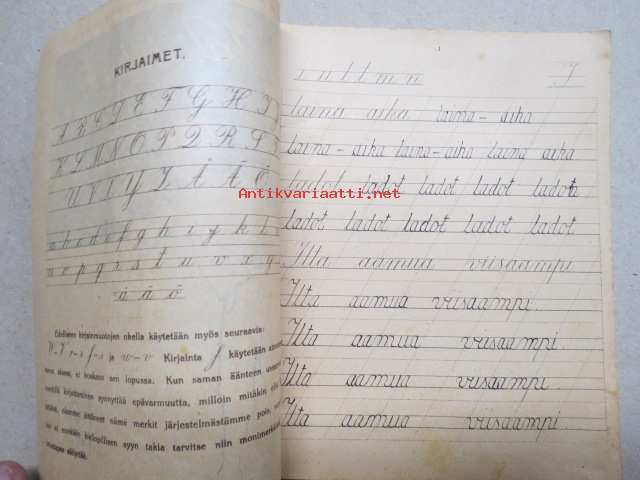 KIRJAIMET.
A B C D E F G H I
K L M N O P Q R S
U V X Y Z Å Ä Ö
a b c d e f g h i j k l
n o p q r s t u v x y
å ä ö
Edellisten kirjainmuotojen ohella käytetään myös seuraavia:
w-v Kirjainta f käytetään
sanan alussa, ei koskaan sen lopussa. Kun saman äänteen
kirjoittaminen synnyttää epävarmuutta, milloin mitäkin
nämä merkit järjestelmästämme pois,
syyn takia tarvitse niin
i u l t m n
laina aika laina-aika
laina-aika laina-aika laina aika
ladot ladot ladot ladot ladot
ladot ladot ladot ladot ladot
Ilta aamua viisaampi
Ilta aamua viisaampi.
Ilta aamua viisaampi.
Ilta aamua viisaampi.
Ilta aamua viisaampi.
Antikvariaatti.net